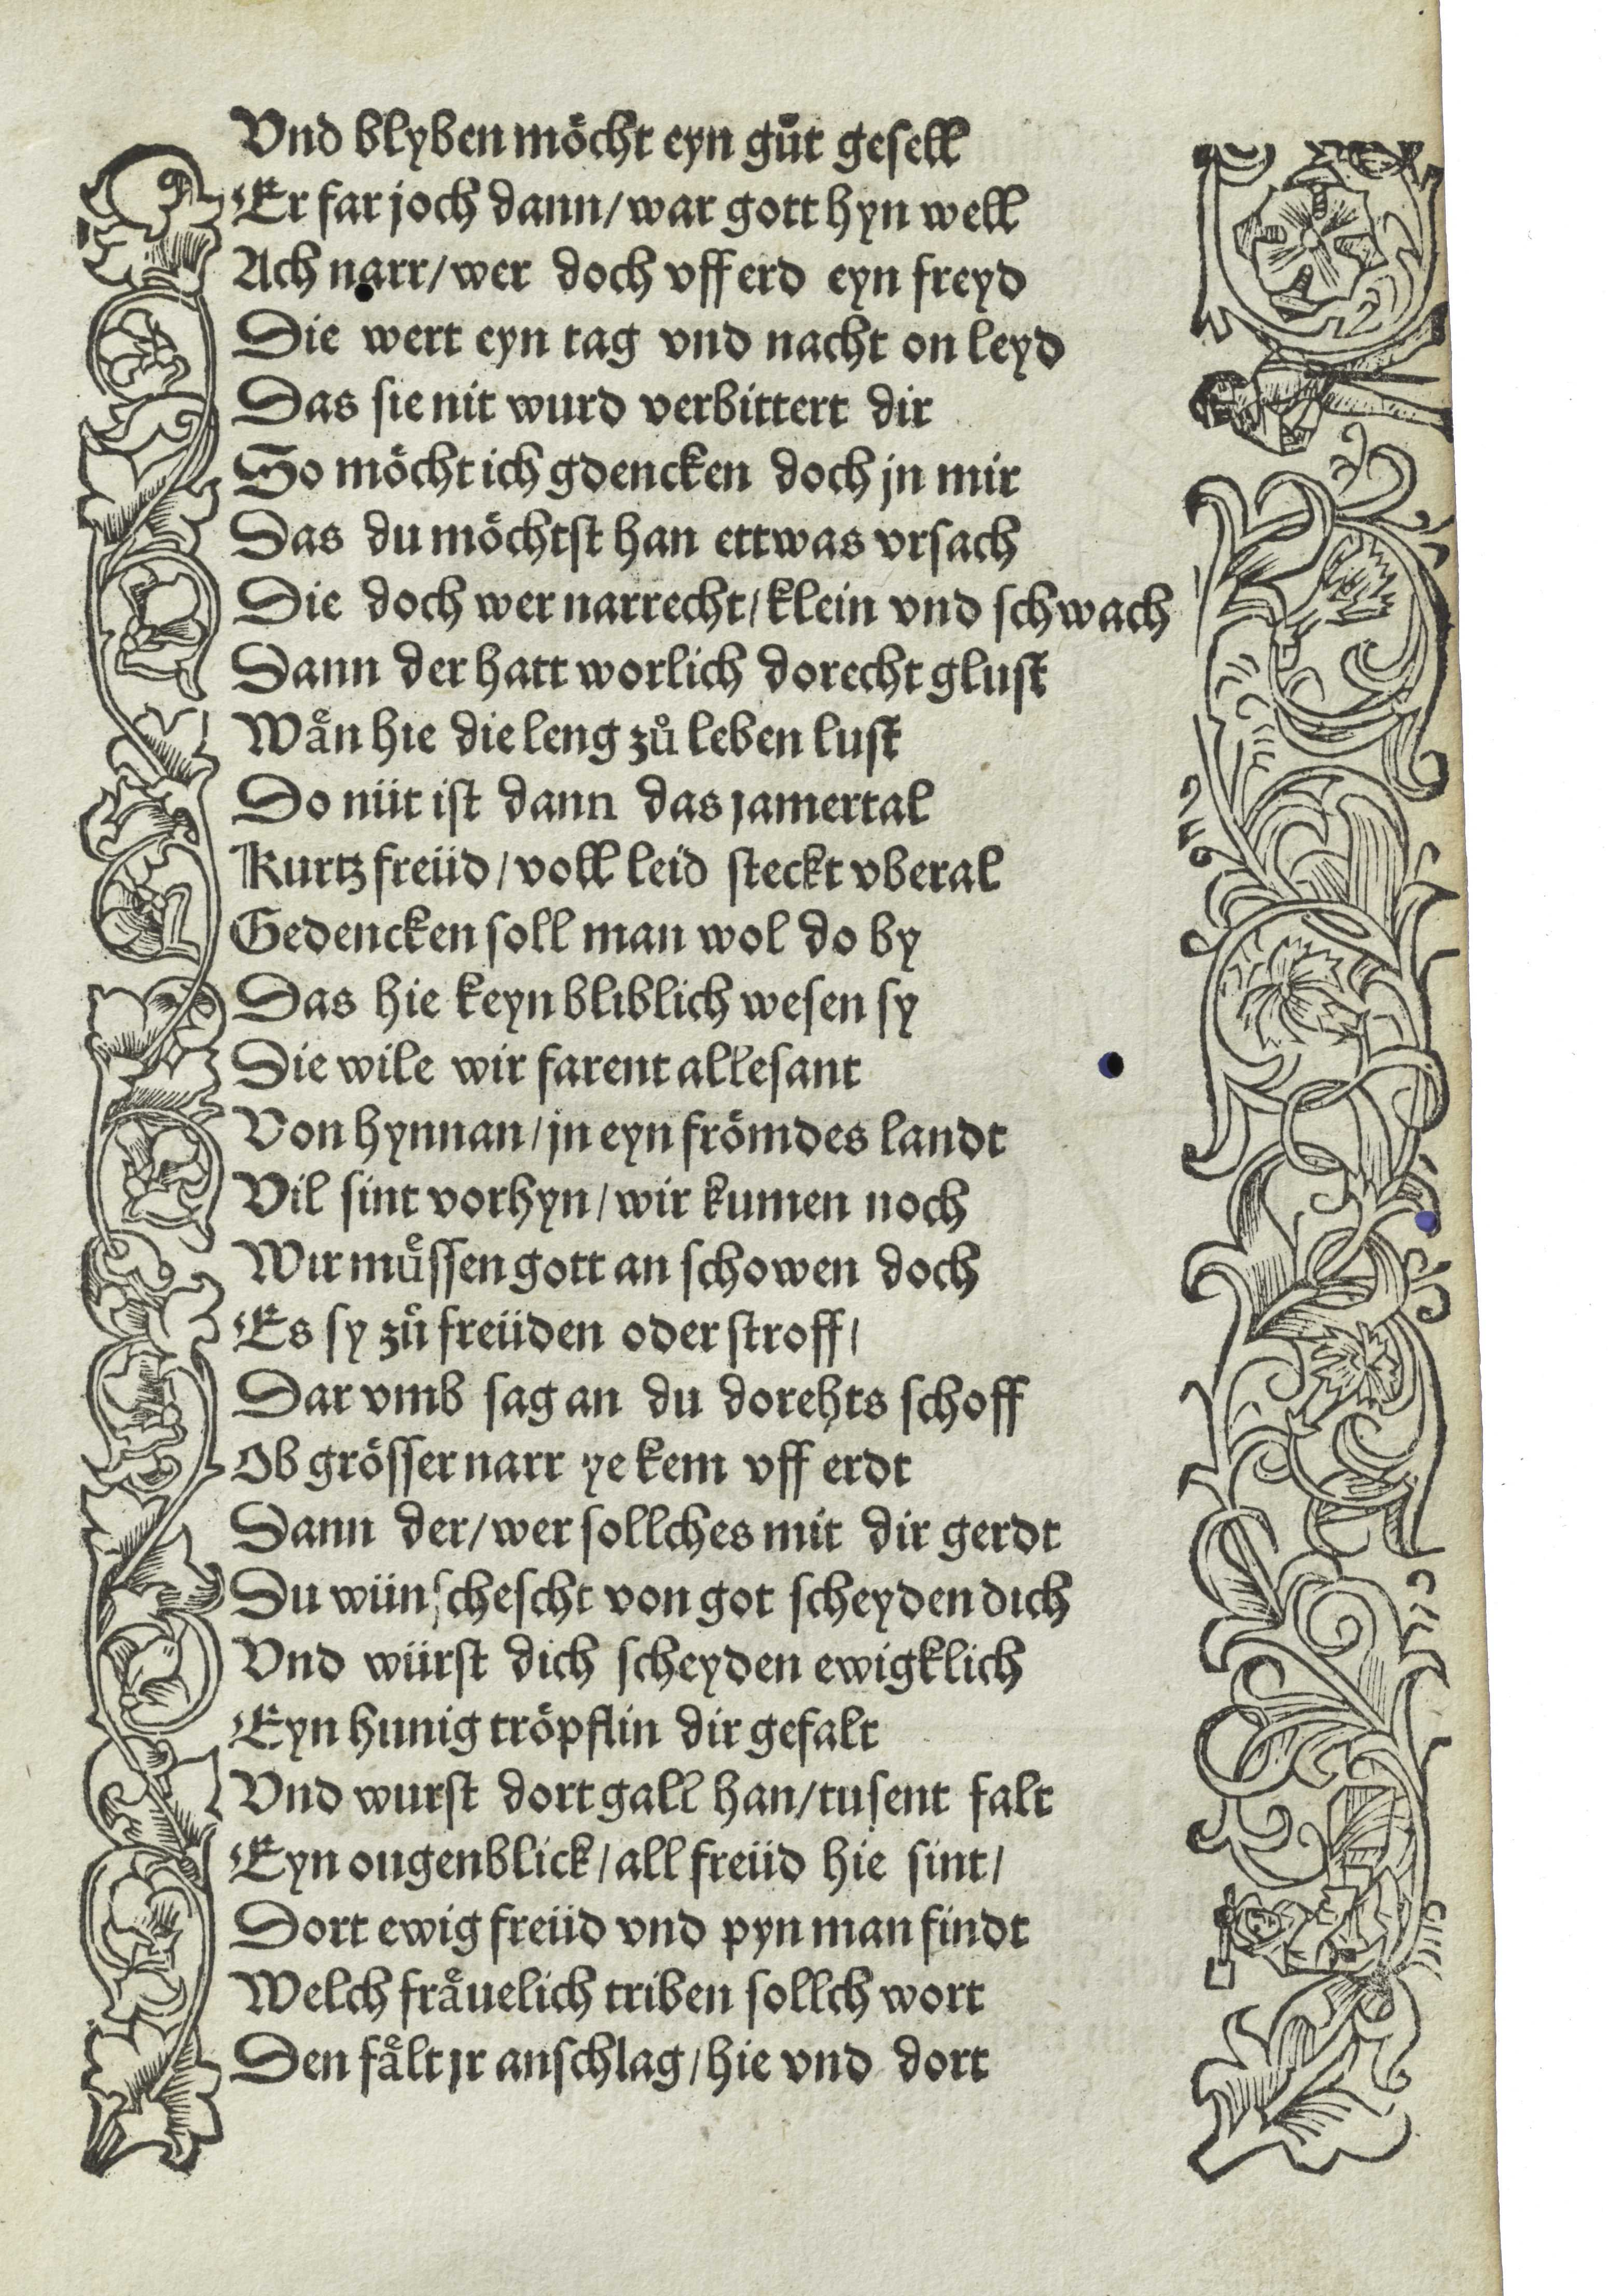 Vnd blyben mo̎cht eyn gůt gesell
Er far joch dann/war gott hyn well
Ach narr/wer doch vff erd eyn freyd
Die wert eyn tag vnd nacht on leyd
Das sie nit wurd verbittert dir
So moͤcht ich gdencken doch jn mir
Das du moͤchtst han ettwas vrsach
Die doch wer narrecht/klein vnd schwach
Dann der hatt worlich dorecht glust
Waͤn hie die leng zů leben lust
Do nüt ist dann das jamertal
Kurtz freüd/voll leid steckt vberal
Gedencken soll man wol do by
Das hie keyn bliblich wesen sy
Die wile wir farent allesant
Von hynnan/jn eyn froͤmdes landt
Vil sint vorhyn/wir kumen noch
Wir muͤssen gott an schowen doch
Es sy zů freüden oder stroff/
Dar vmb sag an du dorehts schoff
Ob groͤsser narr ye kem vff erdt
Dann der/wer sollches mit dir gerdt
Du wünschescht von got scheyden dich
Vnd würst dich scheyden ewigklich
Eyn hunig troͤpflin dir gefalt
Vnd wurst dort gall han/tusent falt
Eyn ougenblick/all freüd hie sint/
Dort ewig freüd vnd pyn man findt
Welch fraͤuelich triben sollch wort
Den faͤlt jr anschlag/hie vnd dort